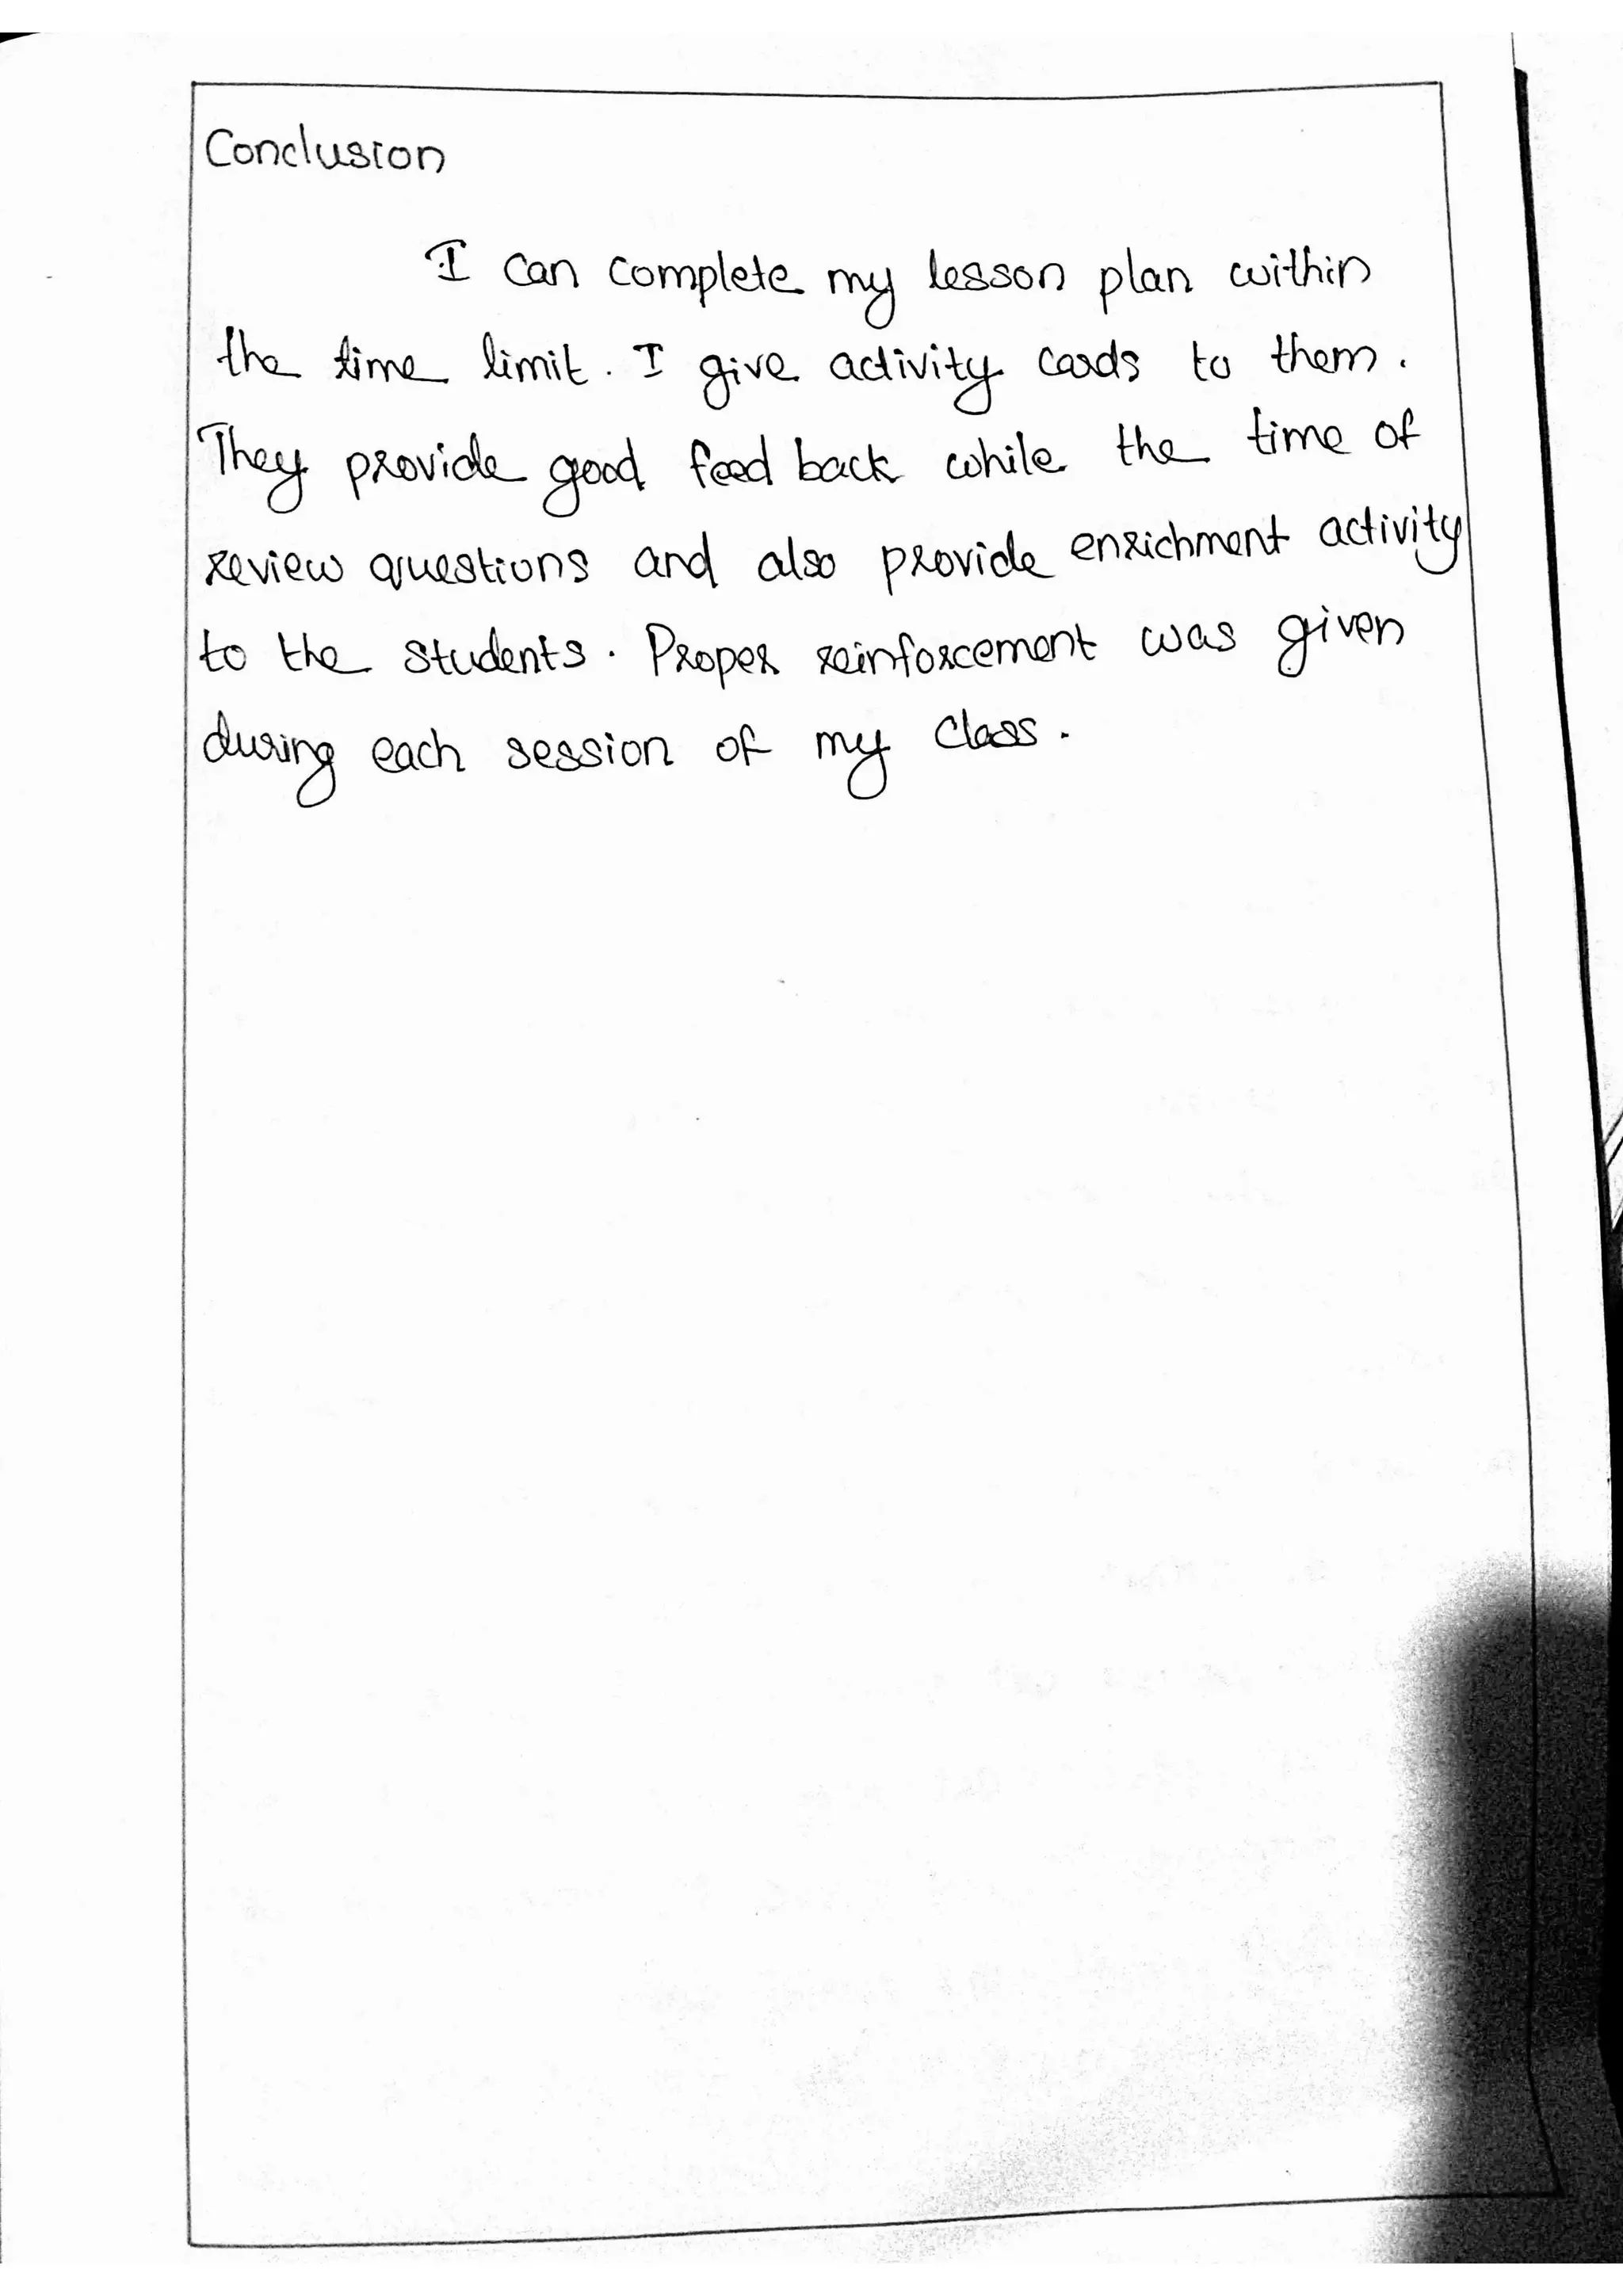 Conclusion
I can complete my lesson plan within
the time limit. I give activity cards to them.
They provide good feed back while the time of
review questions and also provide enrichment activity
to the students. Proper reinforcement was given
during each session of my class.